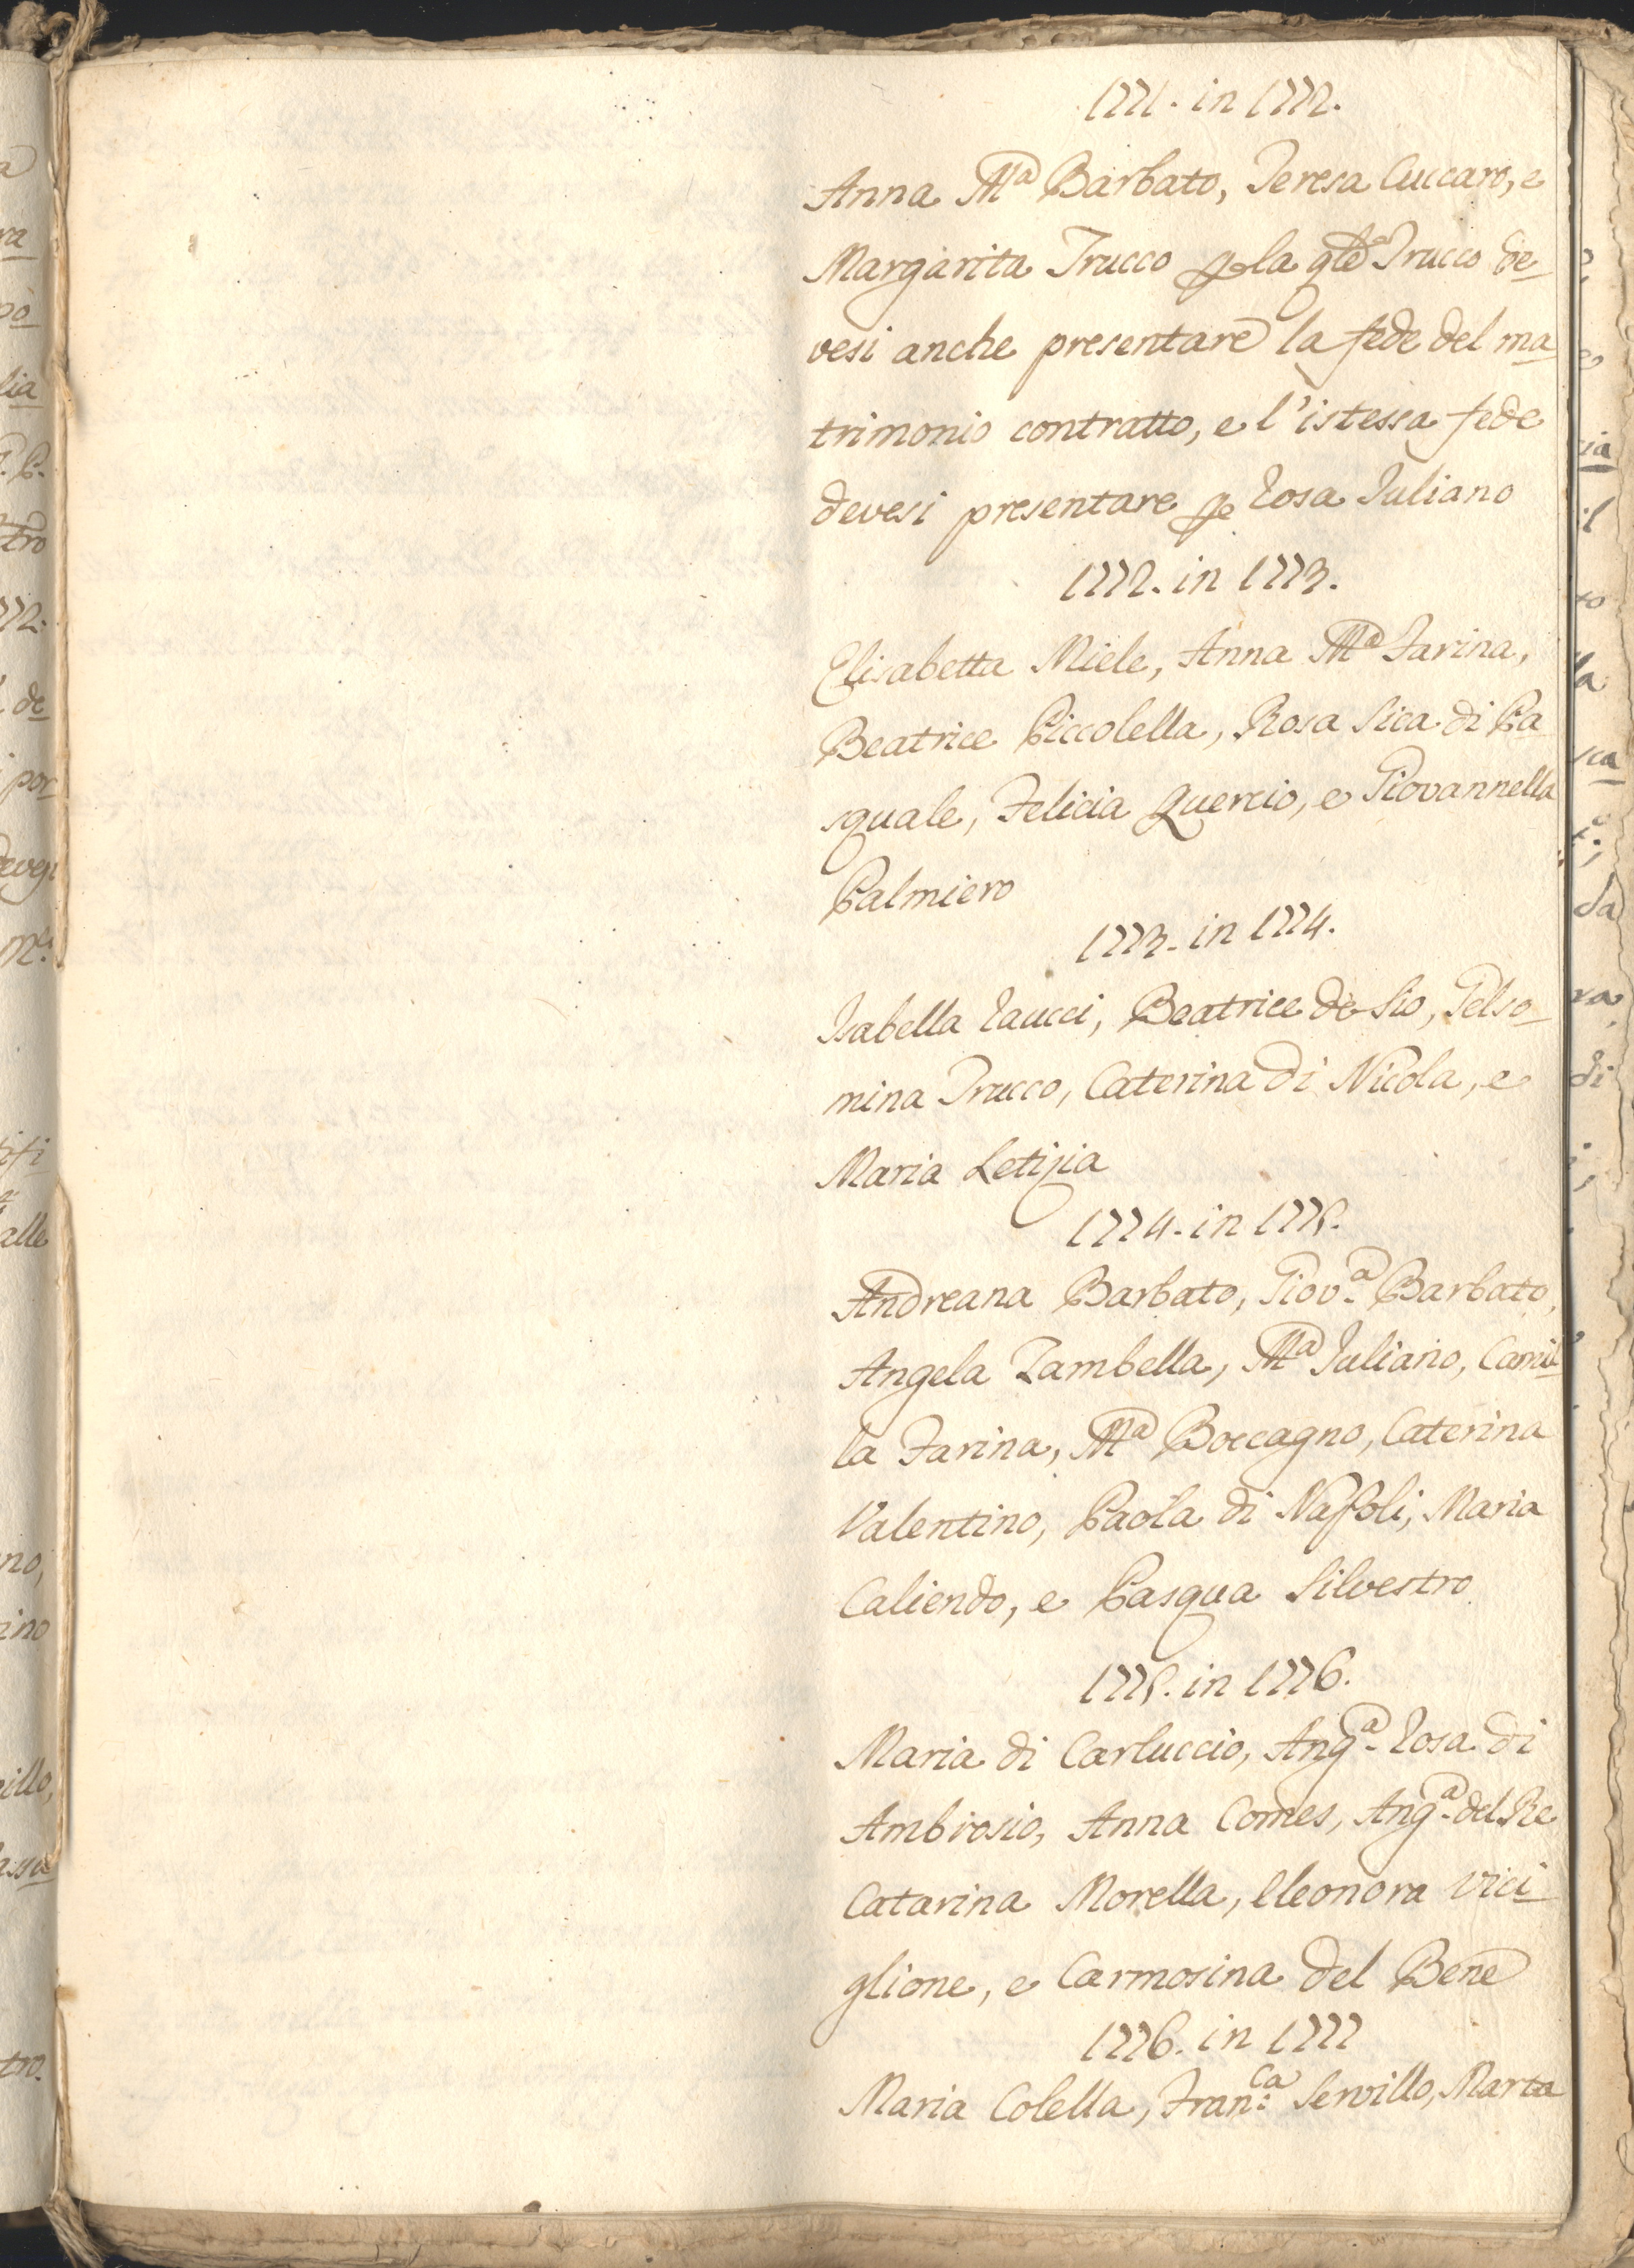 1771. in 1772.
Anna Mª Barbato, Teresa Cuccaro, e
Margarita Trucco p la qle Trucco de
vesi anche presentare la fede del ma
trimonio contratto, e l'istessa fede
devesi presentare p Rosa Iuliano
1772. in 1773.
Elisabetta Miele, Anna Mª Farina,
Beatrice Piccolella, Rosa Sica di Pa
squale, Felicia Quercio, e Giovannella
Palmiero
1773. in 1774.
Isabella Iaucci, Beatrice de Sio, Gelso
mina Trucco, Caterina di Nicola, e
Maria Letizia
1774. in 1775.
Andreana Barbato, Giov.ª Barbato,
Angela Zambella, Mª Iuliano, Camil
la Farina, Mª Boccagno, Caterina
Valentino, Paola di Napoli, Maria
Caliendo, e Pasqua Silvestro
1775. in 1776.
Maria di Carluccio, Ang.ª Rosa di
Ambrosio, Anna Comes, Ang.ª del Re
Catarina Morella, Eleonora Vici
glione, e Carmosina del Bene
1776. in 1777
Maria Colella, Fran:ca Servillo, Marta